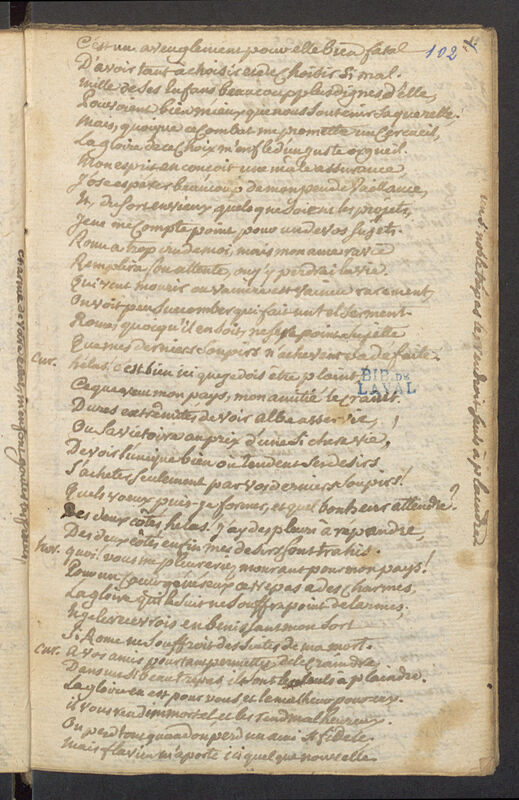 C'est un aveuglement pour elle bien fatal
D'avoir tant à choisir et de choisir si mal.
Mille de ses enfans beaucoup plus dignes d'elle,
Pouvoient bien mieux que nous soutenir sa querelle.
Mais, quoique ce combat me promette un cercueil,
La gloire de ce choix m'enfle d'un juste orgueil.
Mon esprit en conçoit une mâle assurance
J'ose esperer beaucoup de mon peu de vaillance,
Et, du sort envieux quelque soient les projets,
Je ne me compte point pour un de vos sujets.
Rome a trop cru de moi, mais mon ame ravie
Remplira son attente, ou j'y perdrai la vie.
Qui veut mourir ou vaincre est vaincu rarement,
On voit peu succomber qui fait un tel serment.
Rome, quoiqu'il en soit, ne sera point sujette
Que mes derniers soupirs n'achevent sa defaite.
Cur. helas, c'est bien ici que je dois être plaint,
Ce que veut mon pays, mon amitié le craint.
Dures extremités de voir Albe asservie,
Ou sa victoire au prix d'une si chere vie,
De voir l'unique bien ou tendent ses desirs
S'acheter seulement par vos derniers soupirs!
Quels voeux puis-je former, et quel bonheur attendre?
Des deux côtés, helas. j'ay des pleurs à repandre,
Des deux côtés enfin mes desirs sont trahis.
hor. quoi! vous me pleurerés mourant pour mon pays!
Pour un coeur généreux ce trepas a des charmes,
La gloire qui le suit ne souffre point de larmes,
Et je le recevrois en benissant mon sort
Si Rome ne souffroit des suites de ma mort.
Cur. A vos amis pourtant permettés de le craindre,
Dans un si beau trepas, ils sont les seuls à plaindre.
La gloire en est pour vous, et le malheur pour eux.
il vous rend immortel, et les rend malheureux.
On perd tout quand on perd un ami si fidele.
Mais flavien m'aporte ici quelque nouvelle.
102
BIB. DE
LAVAL